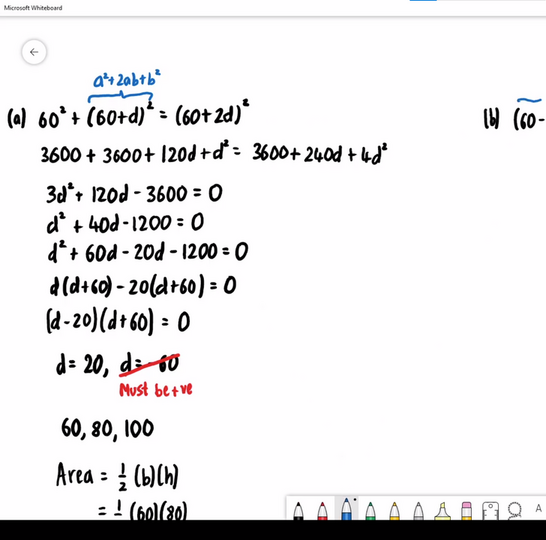 Microsoft Whiteboard
a²+2ab+b²
(a) 60² + (60+d)² = (60+2d)²
(b) (60-
3600 + 3600 + 120d + d² = 3600 + 240d + 4d²
3d² + 120d - 3600 = 0
d² + 40d - 1200 = 0
d² + 60d - 20d - 1200 = 0
d(d+60) - 20(d+60) = 0
(d-20)(d+60) = 0
d = 20, d = -60
Must be +ve
60, 80, 100
Area = ½ (b)(h)
= ½ (60)(80)
A